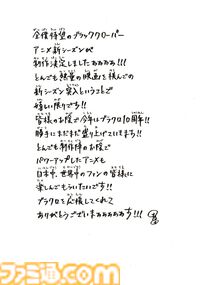 全僕待望のブラッククローバー
アニメ新シーズンが
制作決定しましたぁぁぁぁ!!!
とんでも熱量の映画を挟んでの
新シーズン突入ということで
嬉しい限りです!!
皆様のお陰で今年にブラクロ10周年!!
勝手にまだまだ盛り上がっています!!
とんでも制作陣のお陰で
パワーアップしたアニメも
日本中、世界中のファンの皆様に
楽しんでもらいたいです!!
ブラクロを応援してくれて
ありがとうございまぁぁぁぁす!!!
ファミ通.com